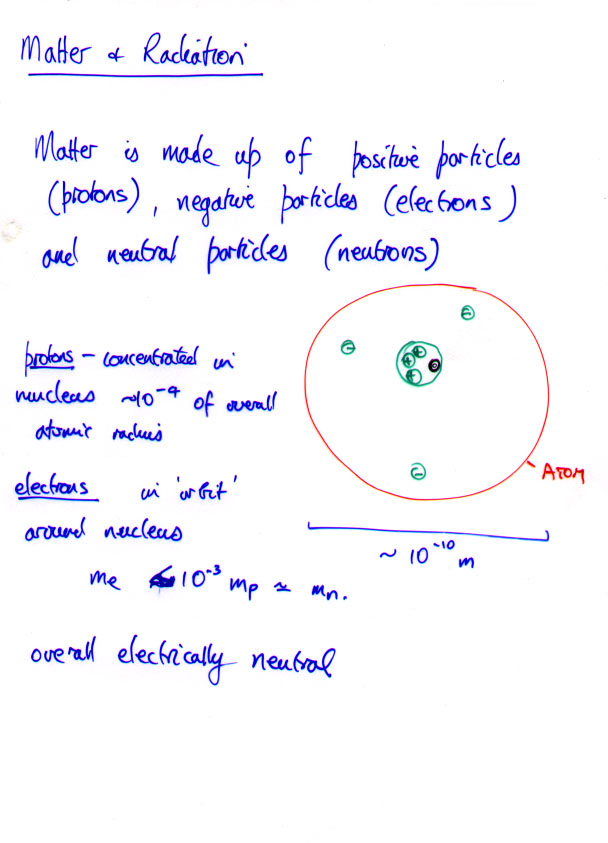 Matter & Radiation
Matter is made up of positive particles
(protons), negative particles (electrons)
and neutral particles (neutrons)
protons - concentrated in
nucleus ~10⁻⁴ of overall
atomic radius
electrons in 'orbit'
around nucleus
mₑ 10⁻³ mₚ ≃ mₙ.
overall electrically neutral
ATOM
~ 10⁻¹⁰ m